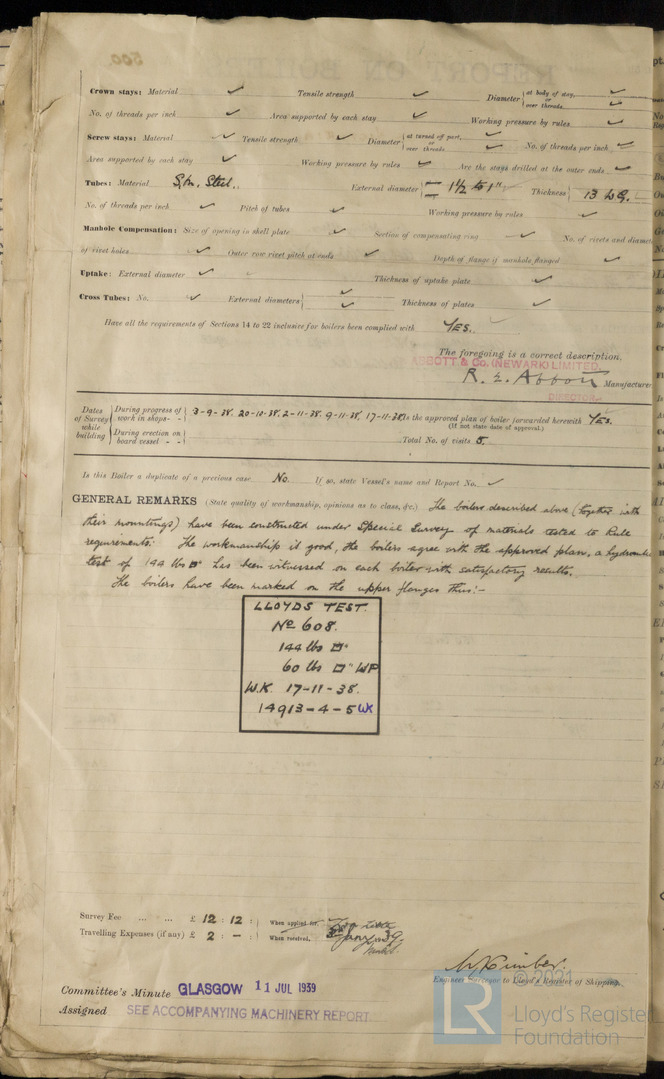 Crown stays: Material ✓ Tensile strength ✓ Diameter { at body of stay, ✓ or over threads ✓
No. of threads per inch ✓ Area supported by each stay ✓ Working pressure by rules ✓
Screw stays: Material ✓ Tensile strength ✓ Diameter { at turned off part, ✓ or over threads ✓ No. of threads per inch ✓
Area supported by each stay ✓ Working pressure by rules ✓ Are the stays drilled at the outer ends ✓
Tubes: Material S.M. Steel. External diameter { 1½ to 1" Thickness { 13 W.G.
No. of threads per inch ✓ Pitch of tubes ✓ Working pressure by rules ✓
Manhole Compensation: Size of opening in shell plate ✓ Section of compensating ring ✓ No. of rivets and diame
of rivet holes ✓ Outer row rivet pitch at ends ✓ Depth of flange if manhole flanged ✓
Uptake: External diameter ✓ Thickness of uptake plate ✓
Cross Tubes: No. ✓ External diameters { ✓ ✓ Thickness of plates ✓
Have all the requirements of Sections 14 to 22 inclusive for boilers been complied with YES.
The foregoing is a correct description,
ABBOTT & Co. (NEWARK) LIMITED.
R. E. Abbott Manufacturer
DIRECTOR.
Dates of Survey while building { During progress of work in shops - - } 3-9-38. 20-10-38. 2-11-38. 9-11-38. 17-11-38. Is the approved plan of boiler forwarded herewith YES.
(If not state date of approval.)
{ During erection on board vessel - - } Total No. of visits 5.
Is this Boiler a duplicate of a previous case No. If so, state Vessel's name and Report No. ✓
GENERAL REMARKS (State quality of workmanship, opinions as to class, &c.) The boilers described above (together with
their mountings) have been constructed under Special Survey of materials tested to Rule
requirements. The workmanship is good, the boilers agree with the approved plan, a hydraulic
test of 144 lbs □" has been witnessed on each boiler with satisfactory results.
The boilers have been marked on the upper flanges thus:-
LLOYDS TEST.
No 608.
144 lbs □"
60 lbs □" WP
W.K. 17-11-38.
14913-4-5 WK
Survey Fee ... ... £ 12 : 12 : } When applied for,
Travelling Expenses (if any) £ 2 : - : } When received, Jany 1939
Engineer Surveyor to Lloyd's Register of Shipping.
Committee's Minute GLASGOW 11 JUL 1939
Assigned SEE ACCOMPANYING MACHINERY REPORT.
© 2021
LR Lloyd's Register
Foundation